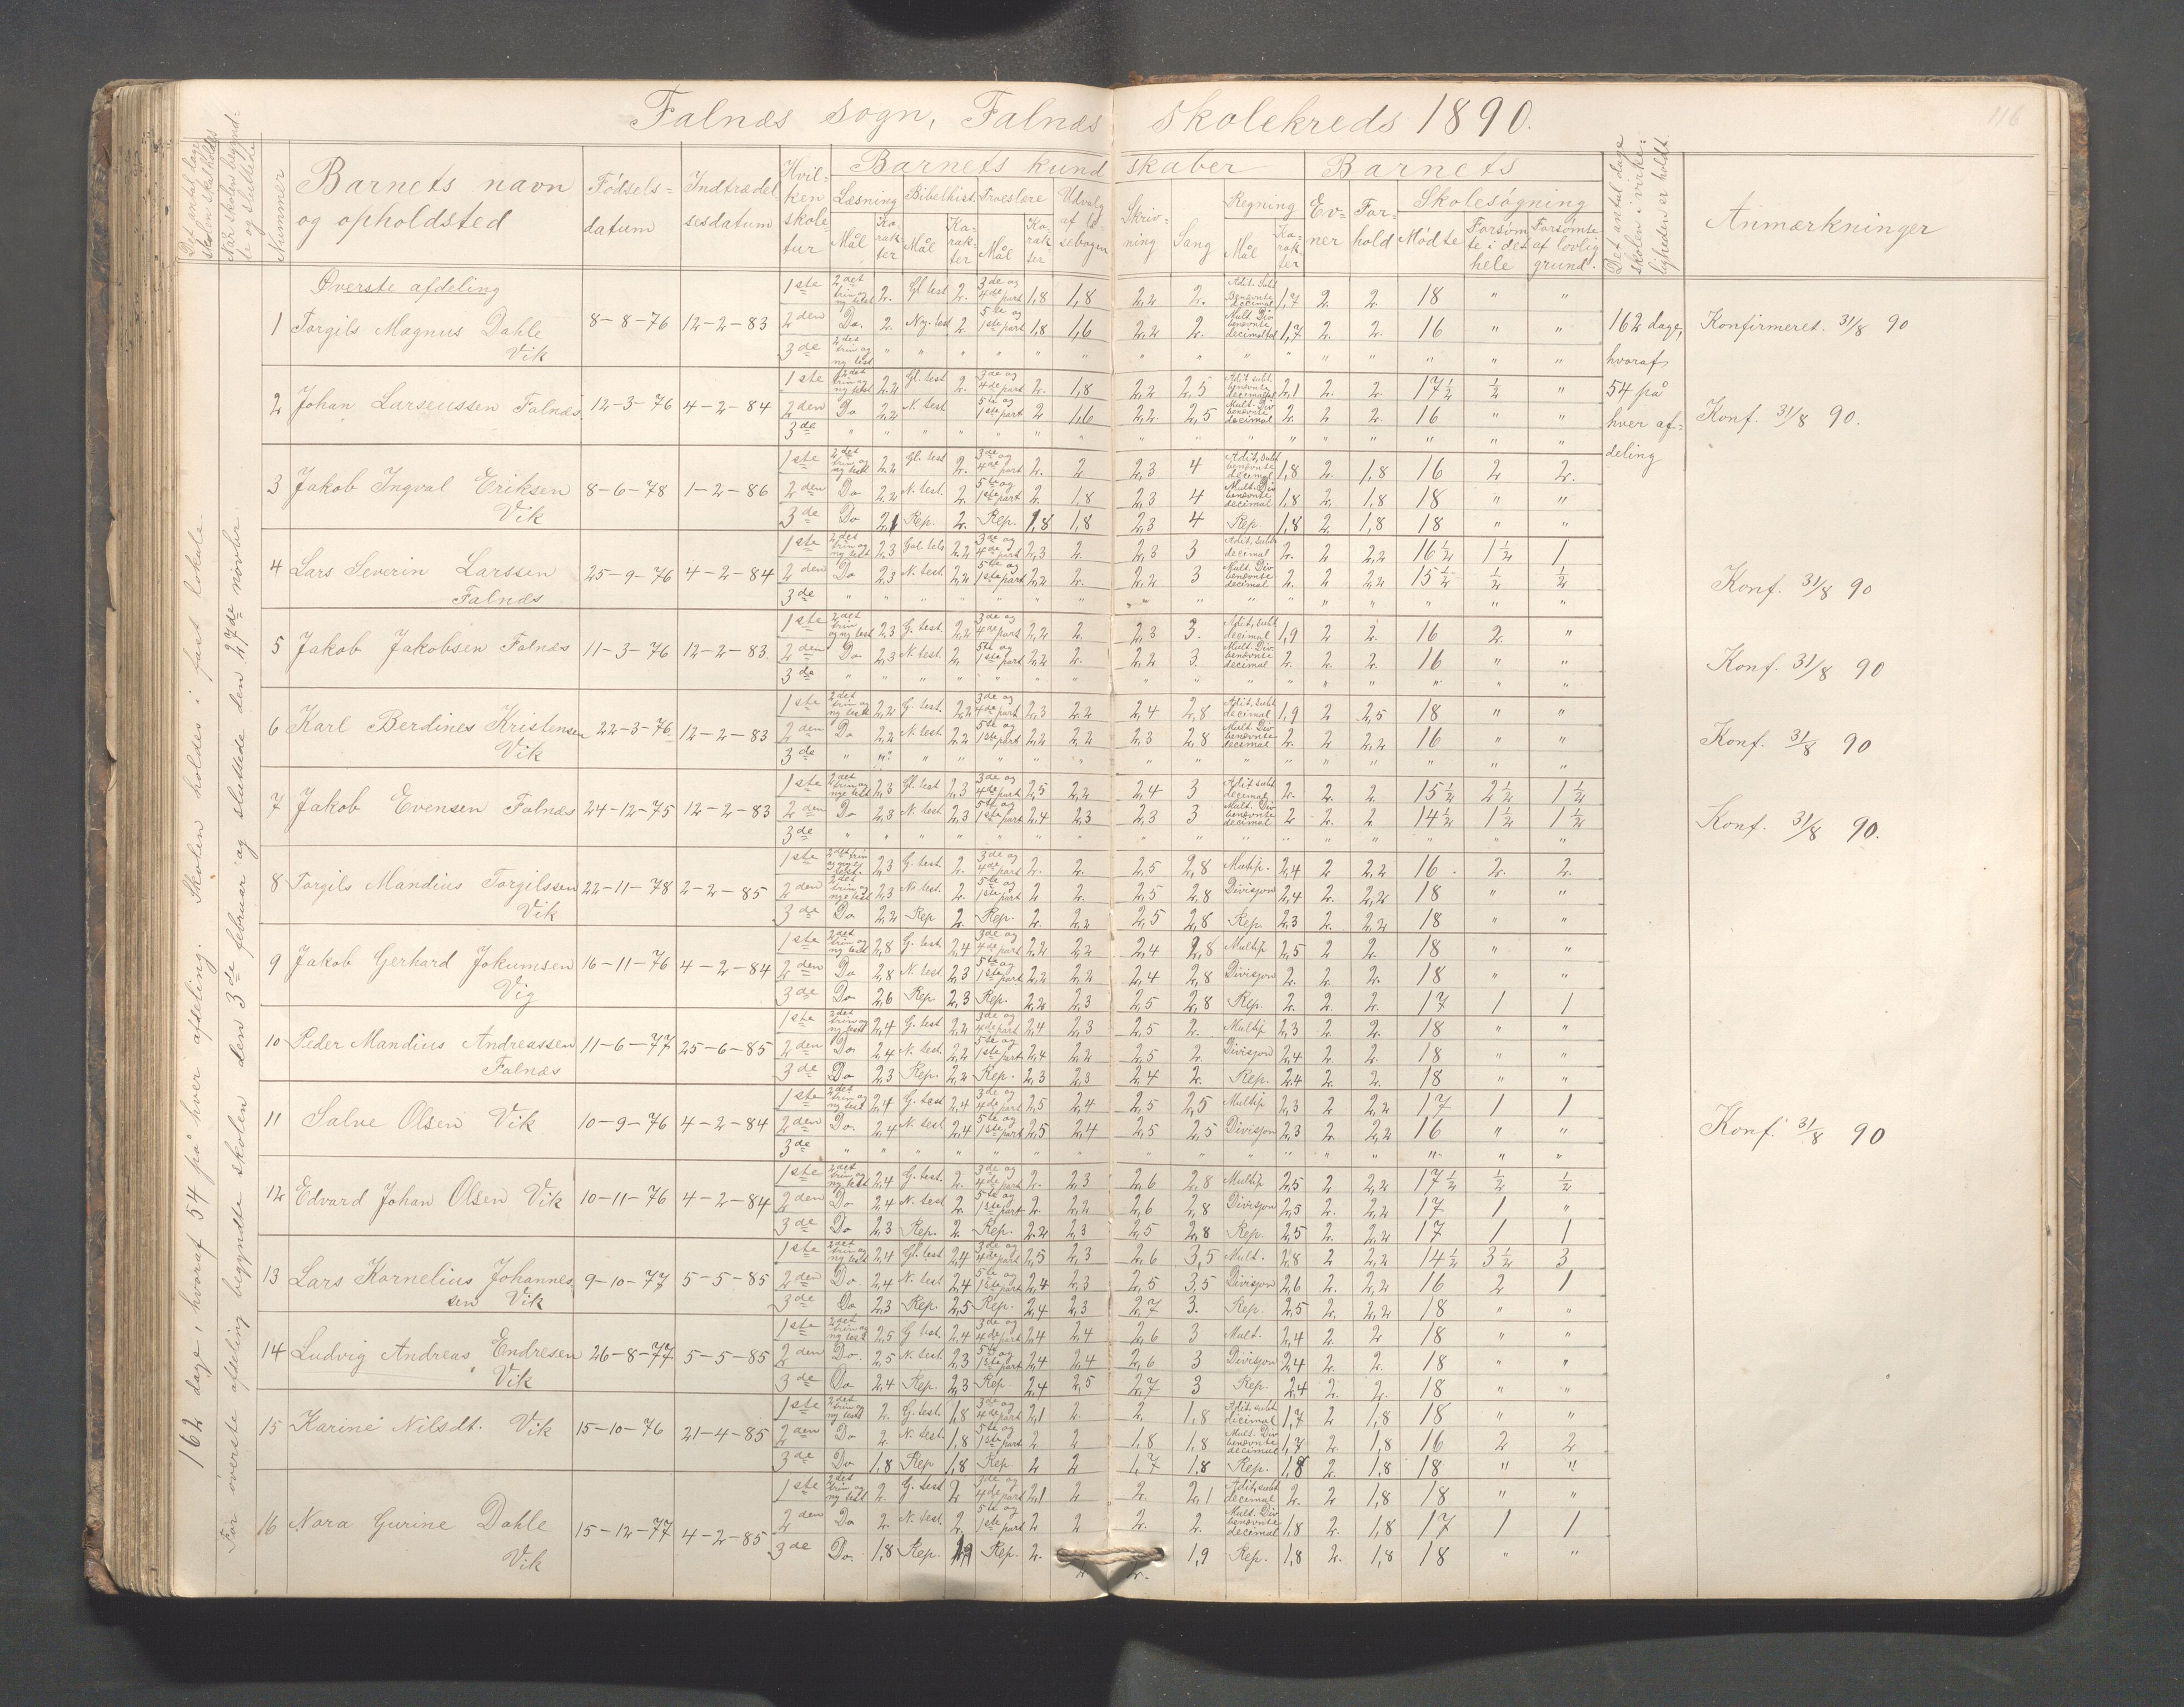 Falnæs sogn, Falnæs skolekreds 1890.
116
Det antal dage skolen skal holdes
Når skolen begyndte og sluttede
Nummer
Barnets navn og opholdsted
Fødselsdatum
Indtrædelsesdatum
Hvilken skoletur
Barnets kundskaber
Læsning Mål Karakter
Bibelhist. Mål Karakter
Troeslære Mål Karakter
Udvalg af læsebogen
Skrivning
Sang
Regning Mål Karakter
Barnets
Evner
Forhold
Skolesøgning
Mødte
Forsømte i det hele
Forsømte af lovlig grund.
Det antal dage skolen i virkeligheden er holdt.
Anmærkninger
162 dage, hvoraf 54 på hver afdeling. Skolen holdes i fast lokale.
For øverste afdeling begyndte skolen den 3de februar og sluttede den 27de novbr.
Øverste afdeling
1 Torgils Magnus Dahle Vik 8-8-76 12-2-83
1ste 2det trin og ny test 2. Gl test 2. 3de og 4de part 1,8 1,8 2,2 2. Adit. Subt Benevnte decimal 1,7 2. 2. 18 " "
2den Do. 2. Ny. test 2. 5te og 1ste part 1,8 1,6 2,2 2. Mult. Div benevnte decimal 1,7 2. 2. 16 " "
3de 2det trin og ny test " " " " " " " " " " " " " " "
162 dage, hvoraf 54 på hver afdeling
Konfirmeret. 31/8 90
2 Johan Larseussen Falnæs. 12-3-76 4-2-84
1ste 2det trin og ny test 2,2 Gl. test 2. 3de og 4de part 2. 1,8 2,2 2,5 Adit subt. benevnte decimal 2,1 2. 2. 17½ ½ "
2den Do 2,2 N. test 5te og 1ste part 2 1,6 2,2 2,5 Mult. Div benevnte decimal 2. 2 2. 16 " "
3de " " " " " " " " " " " " " " " "
Konf. 31/8 90.
3 Jakob Ingval Eriksen Vik 8-6-78 1-2-86
1ste 2det trin og ny test 2,2 Gl. test 2. 3de og 4de part 2. 2. 2,3 4 Adit, subt benevnte decimal 1,8 2. 1,8 16 2 2.
2den Do 2,2 N. test. 2. 5te og 1ste part 2. 1,8 2,3 4 Mult. Div benevnte decimal 1,8 2. 1,8 18 " "
3de Do 2,1 Rep. 2. Rep. 1,8 1,8 2,3 4 Rep. 1,8 2. 1,8 18 " "
4 Lars Severin Larssen Falnæs 25-9-76 4-2-84
1ste 2det trin og ny test 2,3 2,2 3de og 4de part 2,3 2. 2,3 3 Adit, subt decimal 2. 2 2,2 16½ 1½ 1
2den Do 2,3 N. test. 2,2 5te og 1ste part 2,2 2. 2,2 3 Mult. Div benevnte decimal 2. 2 2,2 15½ ½ ½
3de " " " " " " " " " " " " " " " "
Konf. 31/8 90
5 Jakob Jakobsen Falnæs 11-3-76 12-2-83
1ste 2det trin og ny test 2,3 G. test. 2,2 3de og 4de part 2,2 2. 2,3 3. Adit, subt decimal 1,9 2 2. 16 2. "
2den Do 2,3 N. test. 2. 5te og 1ste part 2,2 2. 2,2 3. Mult. Div. benevnte decimal 2. 2. 2. 16 " "
3de " " " " " " " " " " " " " " " "
Konf. 31/8 90
6 Karl Berdines Kristensen Vik 22-3-76 12-2-83
1ste 2det trin og ny test 2,2 G. test. 2,2 3de og 4de part 2,3 2,2 2,4 2,8 Adit, subt decimal 1,9 2 2,5 18 " "
2den Do 2,2 N. test 2,2 5te og 1ste part 2,2 2,2 2,3 2,8 Mult. Div benevnte decimal 2. 2 2,2 16 " "
3de " " " " " " " " " " " " " " " "
Konf. 31/8 90
7 Jakob Evensen Falnæs 24-12-75 12-2-83
1ste 2det trin og nye test 2,3 Gl. test 2,3 3de og 4de part 2,5 2,2 2,4 3 Adit subt decimal 2. 2. 2. 15½ 2½ 1½
2den Do 2,3 N. test 2,3 5te og 1ste part 2,4 2,3 2,3 3 Mult. Div benevnte decimal 2 2. 2 14½ 1½ 1½
3de " " " " " " " " " " " " " " " "
Konf. 31/8 90.
8 Torgils Mandius Torgilssen Vik 22-11-78 2-2-85
1ste 2det trin og nye test. 2,3 G. test. 2. 3de og 4de part 2. 2. 2,5 2,8 Multip. 2,4 2 2,2 16 2. 2.
2den 2det trin og nye test 2,3 N. test. 2. 5te og 1ste part 2 2. 2,5 2,8 Divisjon 2,4 2. 2,2 18 " "
3de Do 2,2 Rep 2. Rep. 2. 2,2 2,5 2,8 Rep. 2,3 2. 2,2 18 " "
9 Jakob Gerhard Jokumsen Vig 16-11-76 4-2-84
1ste 2det trin og ny test 2,8 G. test 2,4 3de og 4de part 2,2 2,2 2,4 2,8 Multip 2,5 2 2. 18 " "
2den Do 2,8 N. test. 2,3 5te og 1ste part 2,2 2,2 2,4 2,8 Divisjon 2. 2. 2. 18 " "
3de Do 2,6 Rep 2,3 Rep. 2,2 2,3 2,5 2,8 Rep. 2. 2. 2. 17 1 1
10 Peder Mandius Andreassen Falnæs 11-6-77 25-6-85
1ste 2det trin og ny test 2,4 G. test 2,2 3de og 4de part 2,4 2,3 2,5 2. Multip. 2,3 2. 2. 18 " "
2den Do. 2,4 N. test. 2,2 5te og 1ste part 2,4 2,2 2,5 2. Divisjon 2,4 2. 2. 18 " "
3de Do 2,3 Rep. 2,2 Rep. 2,3 2,3 2,4 2. Rep. 2,4 2. 2. 18 " "
11 Salve Olsen Vik 10-9-76 4-2-84
1ste 2det trin og ny test 2,4 G. test 2,4 3de og 4de part 2,5 2,4 2,5 2,5 Multip 2,3 2 2,2 17 1 1
2den Do. 2,4 N. test 2,4 5te og 1ste part 2,5 2,4 2,5 2,5 Divisjon 2,3 2. 2,2 16 " "
3de " " " " " " " " " " " " " " " "
Konf. 31/8 90
12 Edvard Johan Olsen Vik 10-11-76 4-2-84
1ste 2det trin og ny test 2,4 G. test. 2. 3de og 4de part 2. 2,3 2,6 2,8 Multip 2,5 2 2,2 17½ ½ ½
2den Do 2,4 N. test 2. 5te og 1ste part 2. 2,2 2,6 2,8 Divisjon 2,5 2. 2,2 17 1 "
3de Do 2,3 Rep. 2. Rep. 2,2 2,3 2,5 2,8 Rep. 2,5 2. 2,2 17 1 1
13 Lars Kornelius Johannessen Vik 9-10-77 5-5-85
1ste 2det trin og ny test 2,4 Gl. test 2,4 3de og 4de part 2,5 2,3 2,6 3,5 Mult. 2,8 2 2,2 14½ 3½ 3
2den Do. 2,4 N. test 2,4 5te og 1ste part 2,4 2,3 2,5 3,5 Divisjon 2,6 2. 2,2 16 2 1
3de Do 2,3 Rep. 2,5 Rep. 2,4 2,3 2,7 3. Rep. 2,5 2. 2,2 18 " "
14 Ludvig Andreas Endresen Vik 26-8-77 5-5-85
1ste 2det trin og ny test 2,5 G test. 2,4 3de og 4de part 2,4 2,4 2,6 3 Mult. 2,4 2 2 18 " "
2den Do. 2,5 N. test 2,3 5te og 1ste part 2,4 2,4 2,6 3 Divisjon 2,4 2. 2. 18 " "
3de Do 2,4 Rep. 2,3 Rep. 2,4 2,5 2,7 3 Rep. 2,4 2. 2. 18 " "
15 Karine Nilsdt. Vik 15-10-76 21-4-85
1ste 2det trin og ny test 2. G. test. 1,8 3de og 4de part 2,1 2. 2. 1,8 Adit. subt decimal 1,7 2 1,8 18 " "
2den Do 2. N. test. 1,8 5te og 1ste part 2 2 1,8 1,8 Mult. Div benevnte decimal 1,7 2. 1,8 16 2 2
3de Do 1,8 Rep 1,8 Rep 2 2 1,7 1,8 Rep. 1,8 2. 1,8 18 " "
16 Nora Gurine Dahle Vik 15-12-77 4-2-85
1ste 2det trin og ny test 2. G. test 2 3de og 4de part 2,1 2 2. 2,1 Adit, subt decimal 2. 2 1,8 18 " "
2den Do 2. N. test. 2. 5te og 1ste part 2 2 2. 2. Mult. Div benevnte decimal 1,8 2. 1,8 17 1 1
3de Do. 1,8 Rep. 1,9 Rep. 2. 2. 2. 1,9 Rep. 1,8 2. 1,8 18 " "